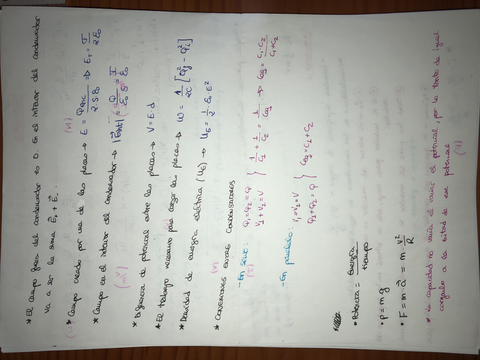 * El campo fuera del condensador es 0. En el interior del condensador
va a ser la suma E₁ + E₂.
* Campo creado por una de las placas → E = Q / 2·S·ε₀ → E₁ = σ / 2ε₀
* Campo en el interior del condensador → |E| = Q / ε₀·S = σ / ε₀
* Diferencia de potencial entre las placas → V = E·d
* El trabajo necesario para cargar las placas → W = 1/2C [Q²f - Q²i]
* Densidad de energía eléctrica (UE) → UE = 1/2 · ε₀ · E²
* Conexiones entre condensadores
- En serie: Q₁ = Q₂ = Q
V₁ + V₂ = V } 1/C₁ + 1/C₂ = 1/Ceq → Ceq = C₁·C₂ / C₁+C₂
- En paralelo: V₁ = V₂ = V
Q₁ + Q₂ = Q } Ceq = C₁ + C₂
• Potencia = Energía / tiempo
• P = m·g
• F = m·a = m · v²/R
* la capacidad no varía el potencial, por lo tanto da igual
a la mitad de ese potencial